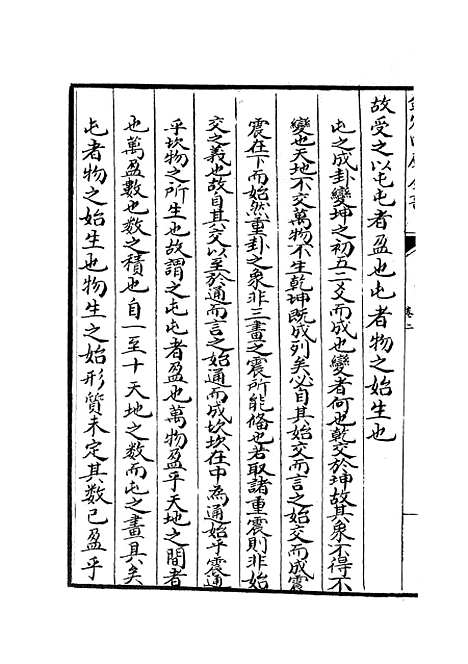 欽定四庫全書
卷二
故受之以屯屯者盈也屯者物之始生也
屯之成卦變坤之初五二爻而成也變者何也乾交於坤故其象不得不
變也天地不交萬物不生乾坤既成列矣必自其始交而言之始交而成震
震在下而始然重卦之象非三畫之震所能備也若取諸重震則非始
交之義也故自其交以至於通而言之始通而成坎坎在中為通始乎震通
乎坎物之所生也故謂之屯屯者盈也萬物盈乎天地之間者
也萬盈數也數之積也自一至十天地之數而屯之畫具矣
屯者物之始生也物生之始形質未定其數已盈乎